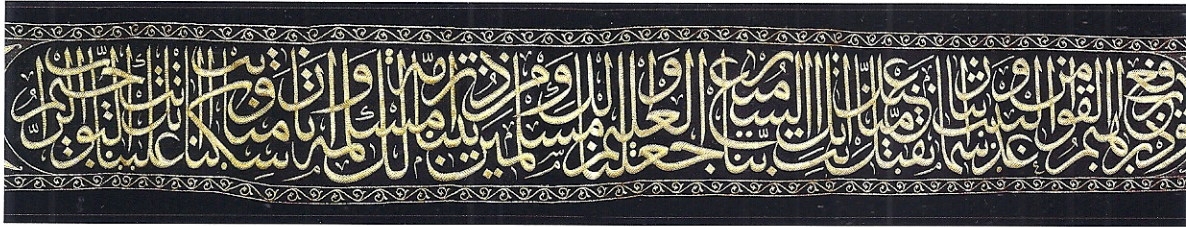 وإذ يرفع إبراهيم القواعد من البيت وإسماعيل ربنا تقبل منا إنك أنت السميع العليم ربنا واجعلنا مسلمين لك ومن ذريتنا أمة مسلمة لك وأرنا مناسكنا وتب علينا إنك أنت التواب الرحيم